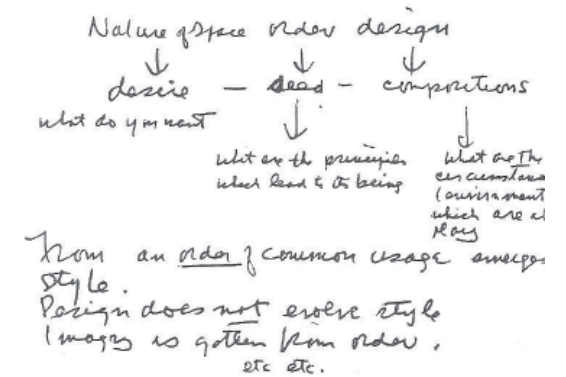 Nature of space order design
desire — seed — compositions
what do you want
what are the principles
which lead to its being
what are the
circumstances
(environment
which are at
play
From an order of common usage emerges
style.
Design does not evolve style
Image is gotten from order.
etc etc.